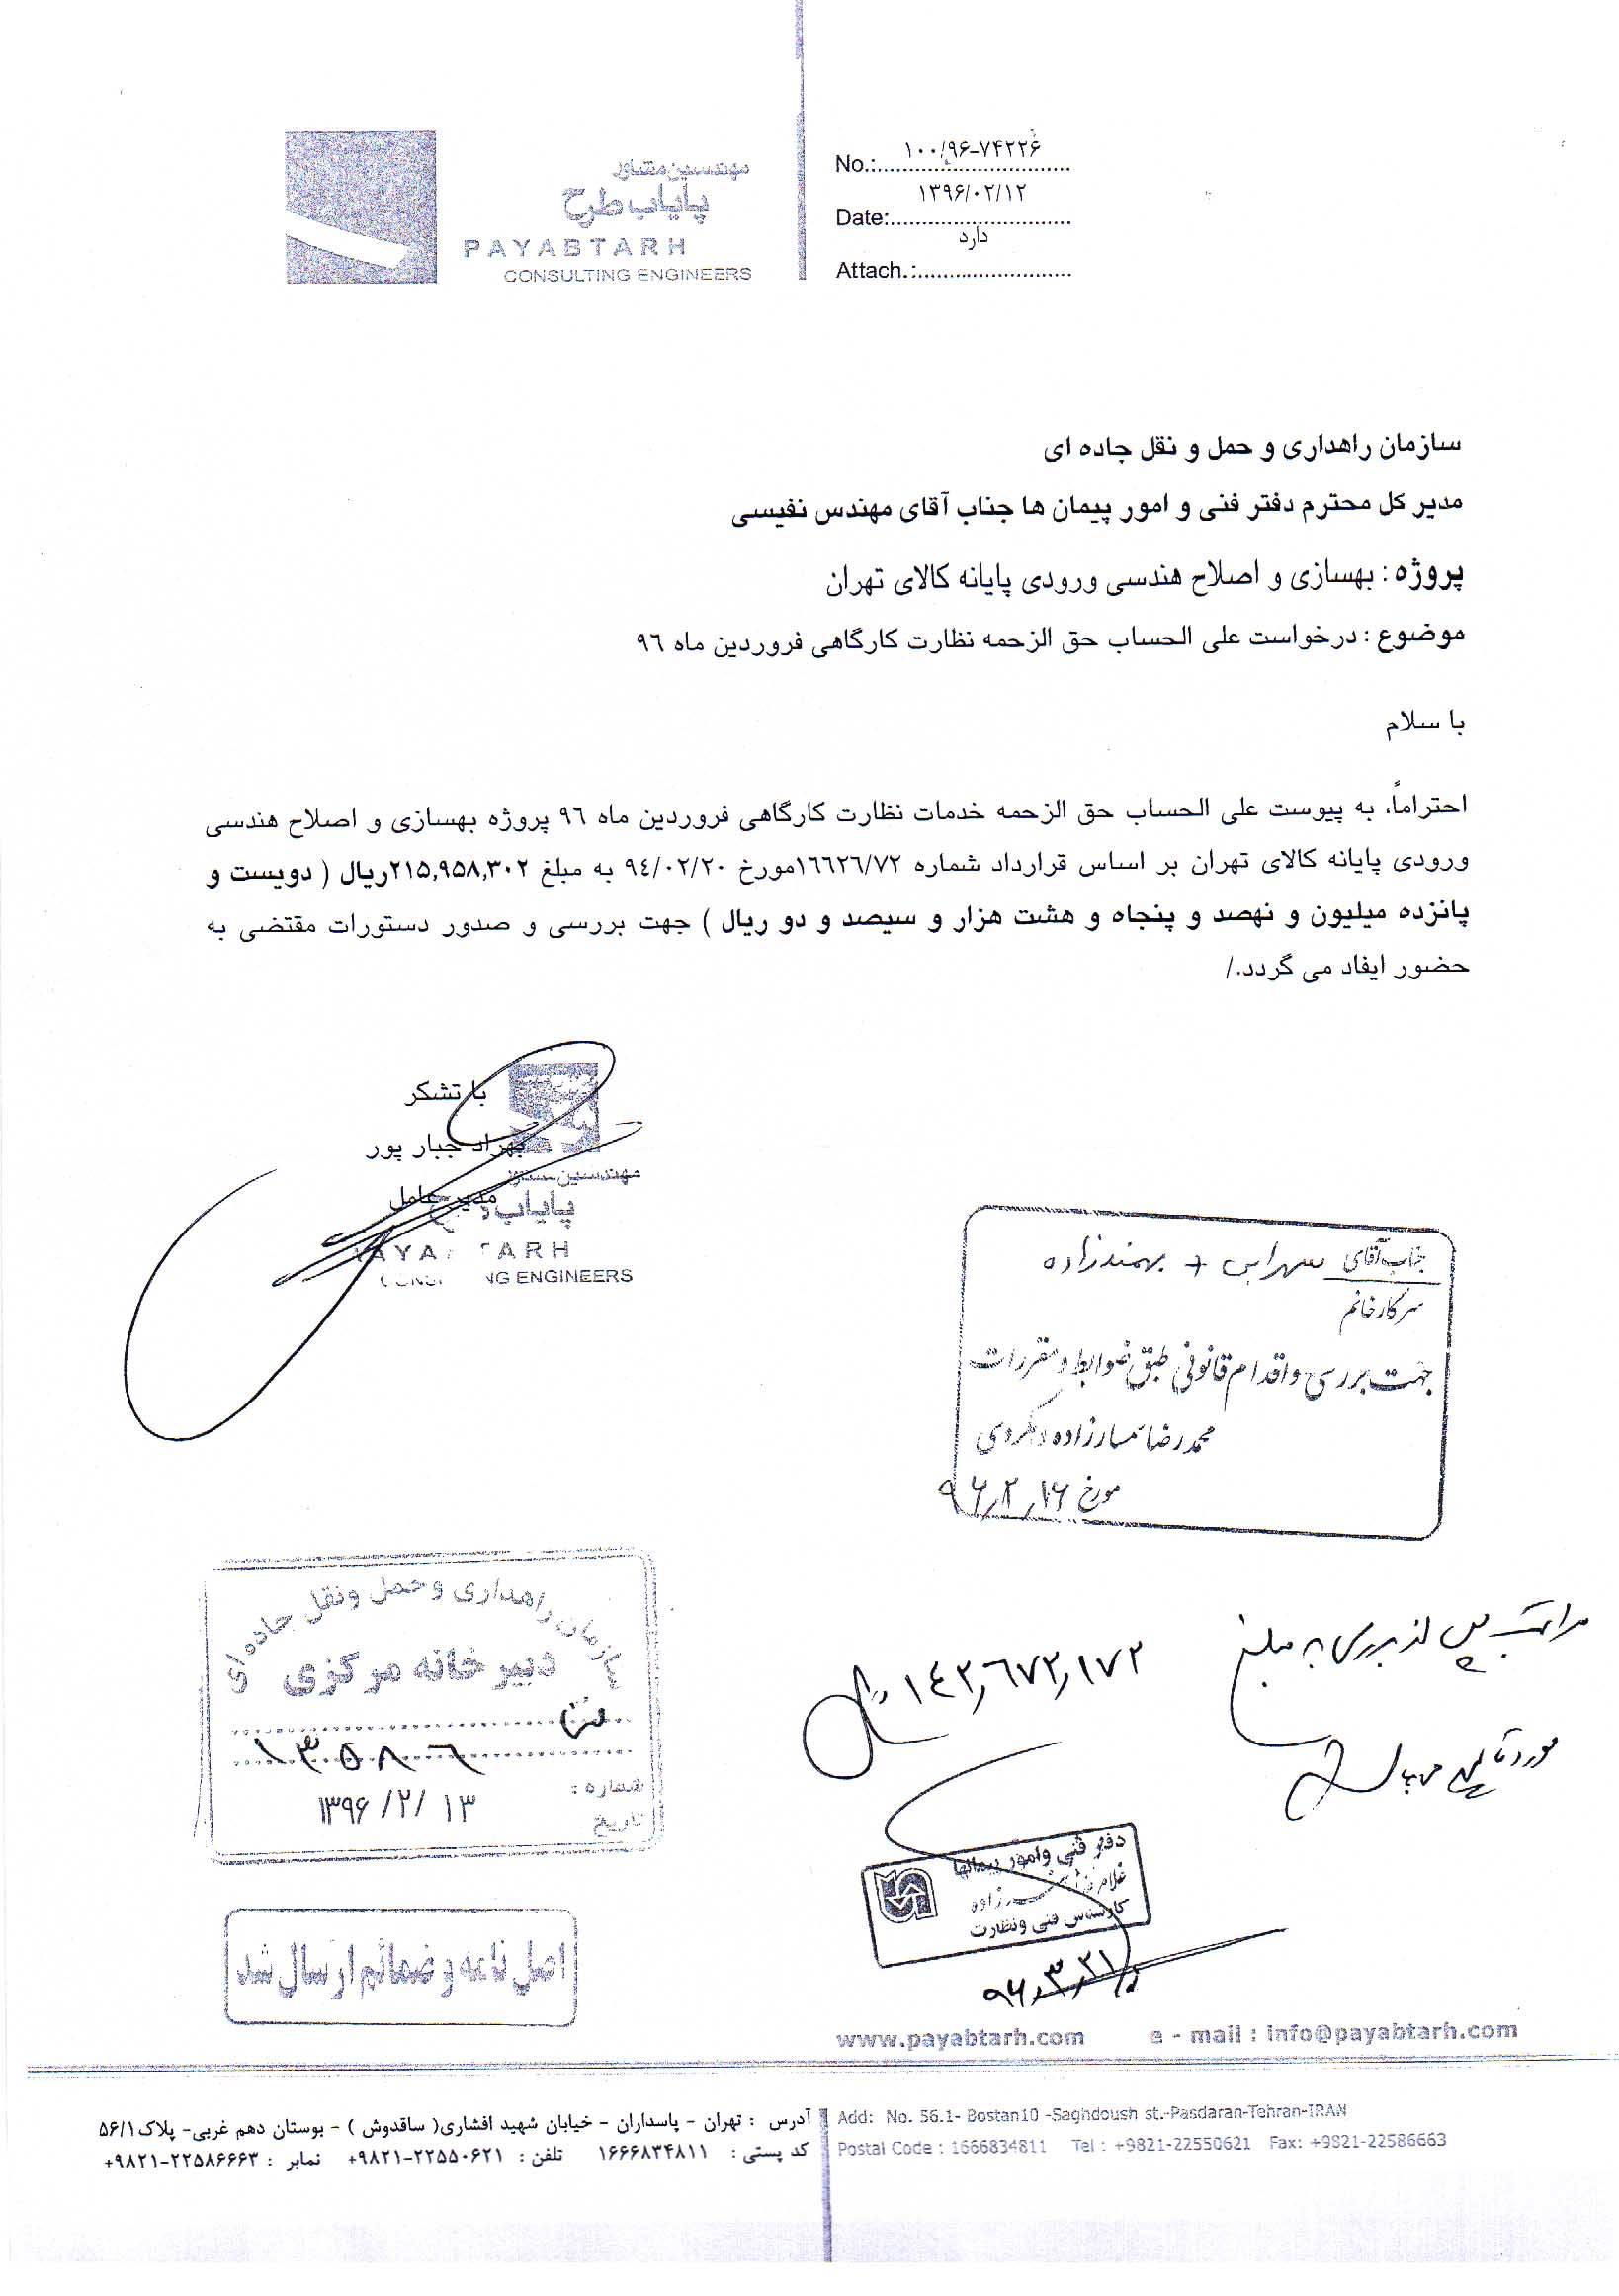 مهندسین مشاور
پایاب طرح
PAYABTARH
CONSULTING ENGINEERS
No.:..............................
۱۰۰/۹۶-۷۴۲۲۶
Date:...........................
۱۳۹۶/۰۲/۱۲
Attach.:.......................
دارد
سازمان راهداری و حمل و نقل جاده ای
مدیر کل محترم دفتر فنی و امور پیمان ها جناب آقای مهندس نفیسی
پروژه : بهسازی و اصلاح هندسی ورودی پایانه کالای تهران
موضوع : درخواست علی الحساب حق الزحمه نظارت کارگاهی فروردین ماه ٩٦
با سلام
احتراماً، به پیوست علی الحساب حق الزحمه خدمات نظارت کارگاهی فروردین ماه ٩٦ پروژه بهسازی و اصلاح هندسی
ورودی پایانه کالای تهران بر اساس قرارداد شماره ١٦٦٢٦/٧٢مورخ ٩٤/٠٢/٢٠ به مبلغ ۲۱۵,۹۵۸,۳۰۲ریال ( دویست و
پانزده میلیون و نهصد و پنجاه و هشت هزار و سیصد و دو ریال ) جهت بررسی و صدور دستورات مقتضی به
حضور ایفاد می گردد./
با تشکر
بهراد جبار پور
مدیر عامل
مهندسین
پایاب
TARH
ENGINEERS
جناب آقای سهرابی + بهمندزاده
سرکار خانم
جهت بررسی و اقدام قانونی طبق ضوابط و مقررات
محمدرضا
مورخ ۹۶,۲,۱۶
سازمان راهداری و حمل و نقل جاده ای
دبیر خانه مرکزی
۱۳۵۸۰۶
شماره :
تاریخ ۱۳۹۶/۲/۱۳
مراتب پس از بررسی به مبلغ
۱۴۲,۶۷۲,۱۷۲ ریال
مورد تایید می باشد
دفتر فنی و امور پیمانها
کارشناس فنی و نظارت
۹۶,۳,۲۱
اصل نامه و ضمائم ارسال شد
www.payabtarh.com e - mail : info@payabtarh.com
آدرس : تهران - پاسداران - خیابان شهید افشاری( ساقدوش ) - بوستان دهم غربی- پلاک۵۶/۱
کد پستی : ۱۶۶۶۸۳۴۸۱۱ تلفن : ۲۲۵۵۰۶۲۱-۹۸۲۱+ نمابر : ۲۲۵۸۶۶۶۳-۹۸۲۱+
Add: No. 56.1- Bostan10 -Saghdoush st.-Pasdaran-Tehran-IRAN
Postal Code : 1666834811 Tel : +9821-22550621 Fax: +9821-22586663